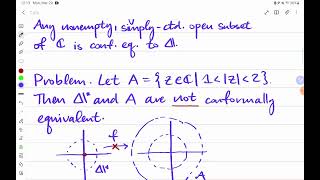 Any nonempty, simply-ctd. open subset
of ℂ is conf. eq. to Δ.
Problem. Let A = {z∈ℂ | 1<|z|<2}.
Then Δ* and A are not conformally
equivalent.
f
Δ*
A